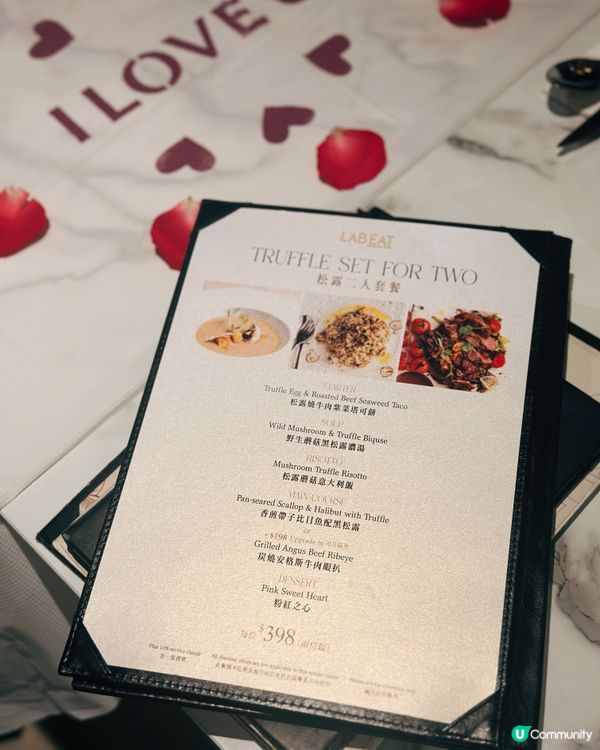 I LOVE
LAB EAT
TRUFFLE SET FOR TWO
松露二人套餐
STARTER
Truffle Egg & Roasted Beef Seaweed Taco
松露燒牛肉紫菜塔可餅
SOUP
Wild Mushroom & Truffle Bisque
野生蘑菇黑松露濃湯
RISOTTO
Mushroom Truffle Risotto
松露蘑菇意大利飯
MAIN COURSE
Pan-seared Scallop & Halibut with Truffle
香煎帶子比目魚配黑松露
or
+ $198 Upgrade to 可升級至
Grilled Angus Beef Ribeye
炭燒安格斯牛肉眼扒
DESSERT
Pink Sweet Heart
粉紅之心
每位 $398 (兩位起)
Plus 10% service charge
另一服務費
All discount offers are not applicable to this set
U Community